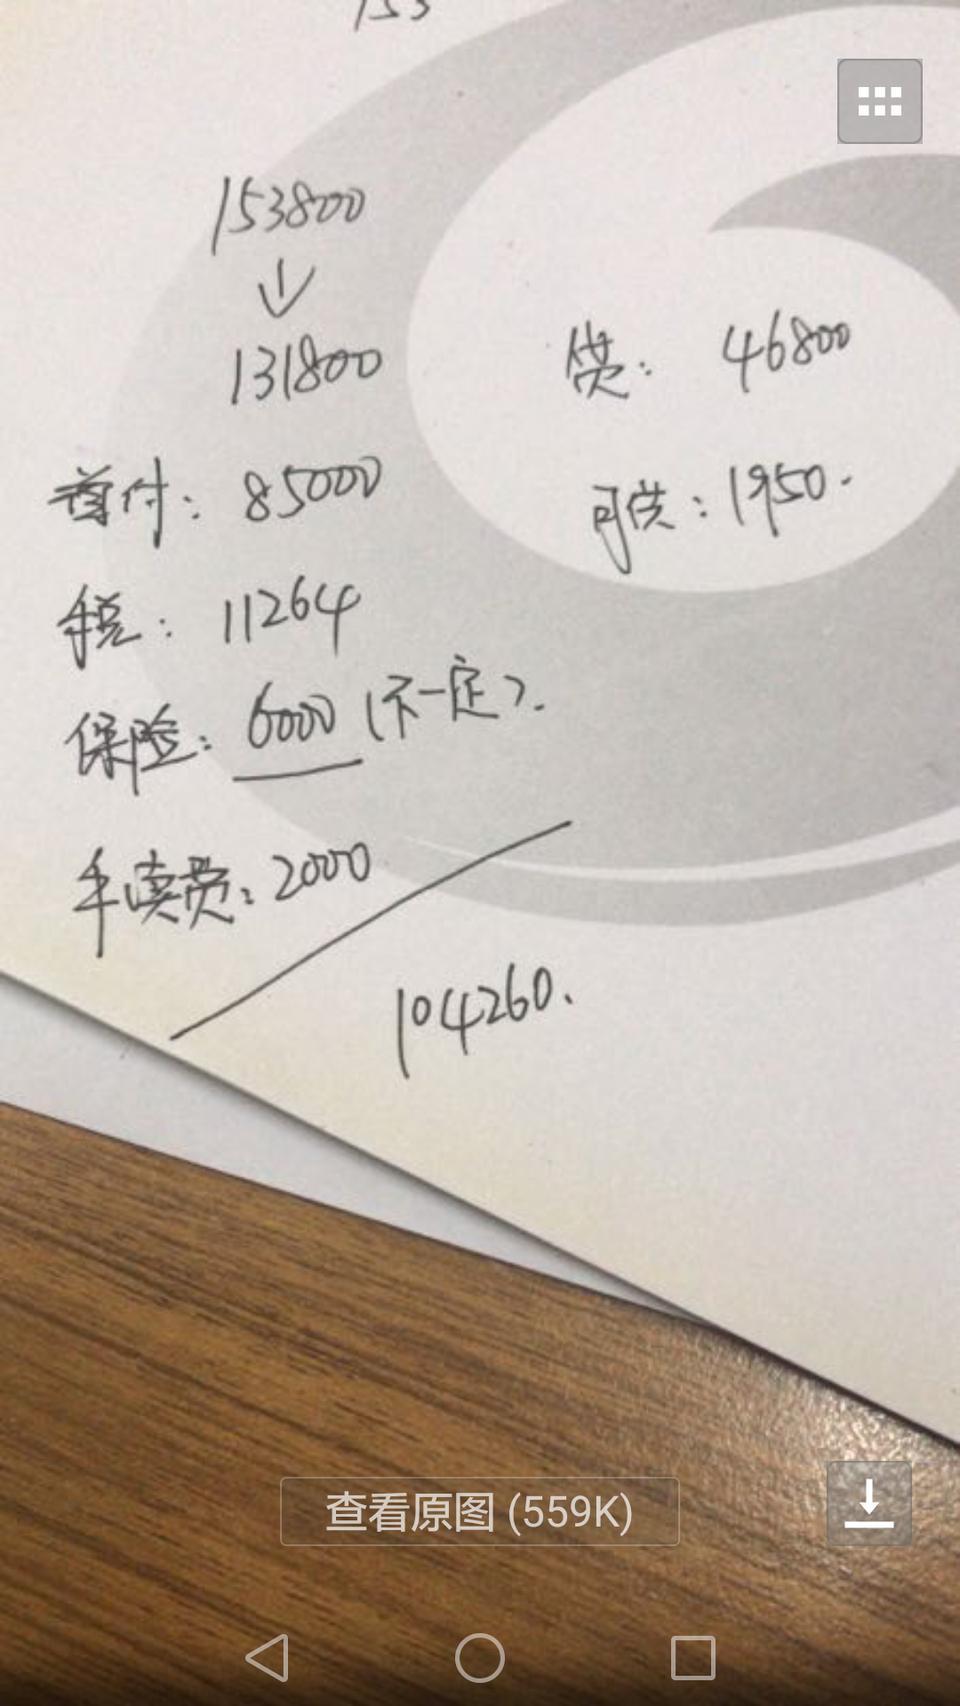 153
153800
131800
贷： 46800
首付：85000
月供：1950.
税：11264
保险：6000（不一定）.
手续费：2000
104260.
查看原图 (559K)